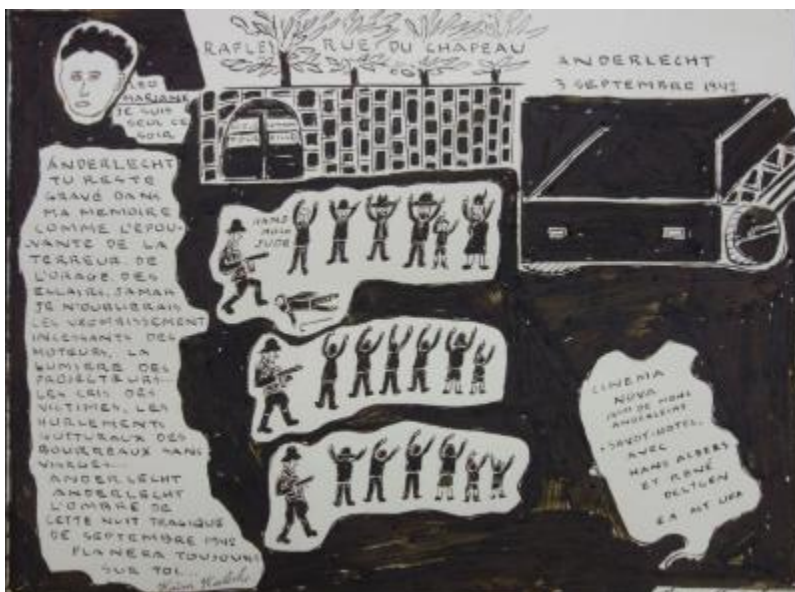 RAFLE! RUE DU CHAPEAU
ANDERLECHT
3 SEPTEMBRE 1942
MARIANE
JE SUIS
SEUL CE
SOIR
ANDERLECHT
TU RESTE
GRAVÉ DANS
MA MEMOIRE
COMME L'EPOU-
VANTE DE LA
TERREUR DE
L'ORAGE DES
ECLAIRS, JAMAI
JE N'OUBLIERAIS
LES VROMBISSEMENT
INCESSANTS DES
MOTEURS, LA
LUMIERE DES
PROJECTEURS
LES CRIS DES
VICTIMES, LES
HURLEMENTS
GUTTURAUX DES
BOURREAUX SANS
VISAGES...
ANDERLECHT
ANDERLECHT
L'OMBRE DE
CETTE NUIT TRAGIQUE
DE SEPTEMBRE 1942
PLANERA TOUJOURS
SUR TOI...
JUDE
CINEMA
NOVA
DE MONS
ANDERLECHT
SAVOY-HOTEL
AVEC
HANS ALBERS
ET RENÉ
DELTGEN
UFA